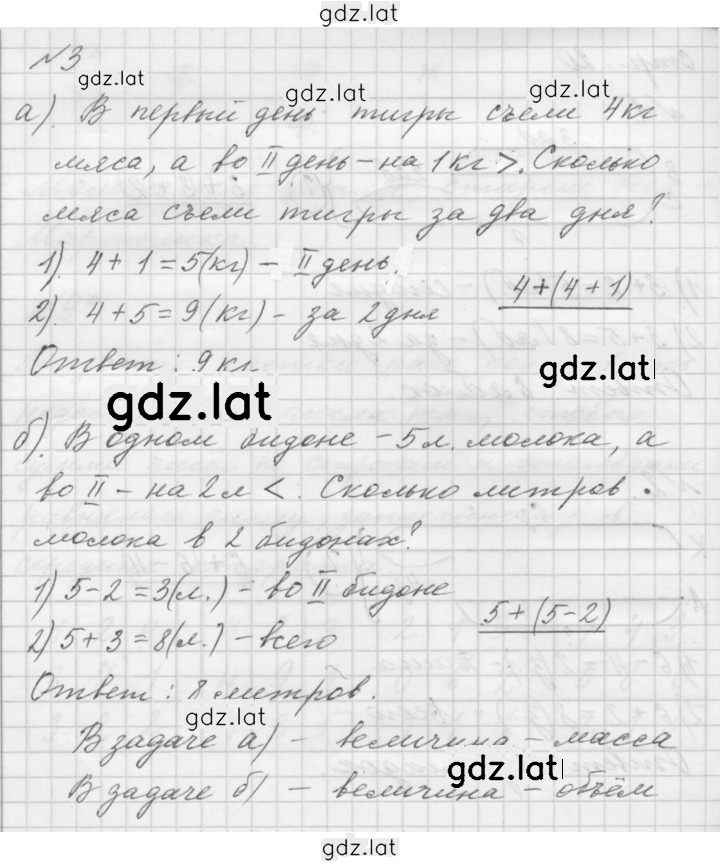 gdz.lat
№3
gdz.lat
gdz.lat
gdz.lat
а). В первый день тигры съели 4кг
мяса, а во II день – на 1кг >. Сколько
мяса съели тигры за два дня?
1). 4 + 1 = 5(кг) – II день.
4+(4+1)
2). 4 + 5 = 9(кг) – за 2 дня
Ответ: 9 кг
gdz.lat
gdz.lat
б). В одном бидоне – 5л. молока, а
во II – на 2л <. Сколько литров
молока в 2 бидонах?
1) 5-2 = 3(л.) – во II бидоне
5+(5-2)
2) 5 + 3 = 8(л.) – всего
Ответ: 8 литров.
gdz.lat
В задаче а) – величина – масса
gdz.lat
В задаче б) – величина – объём
gdz.lat